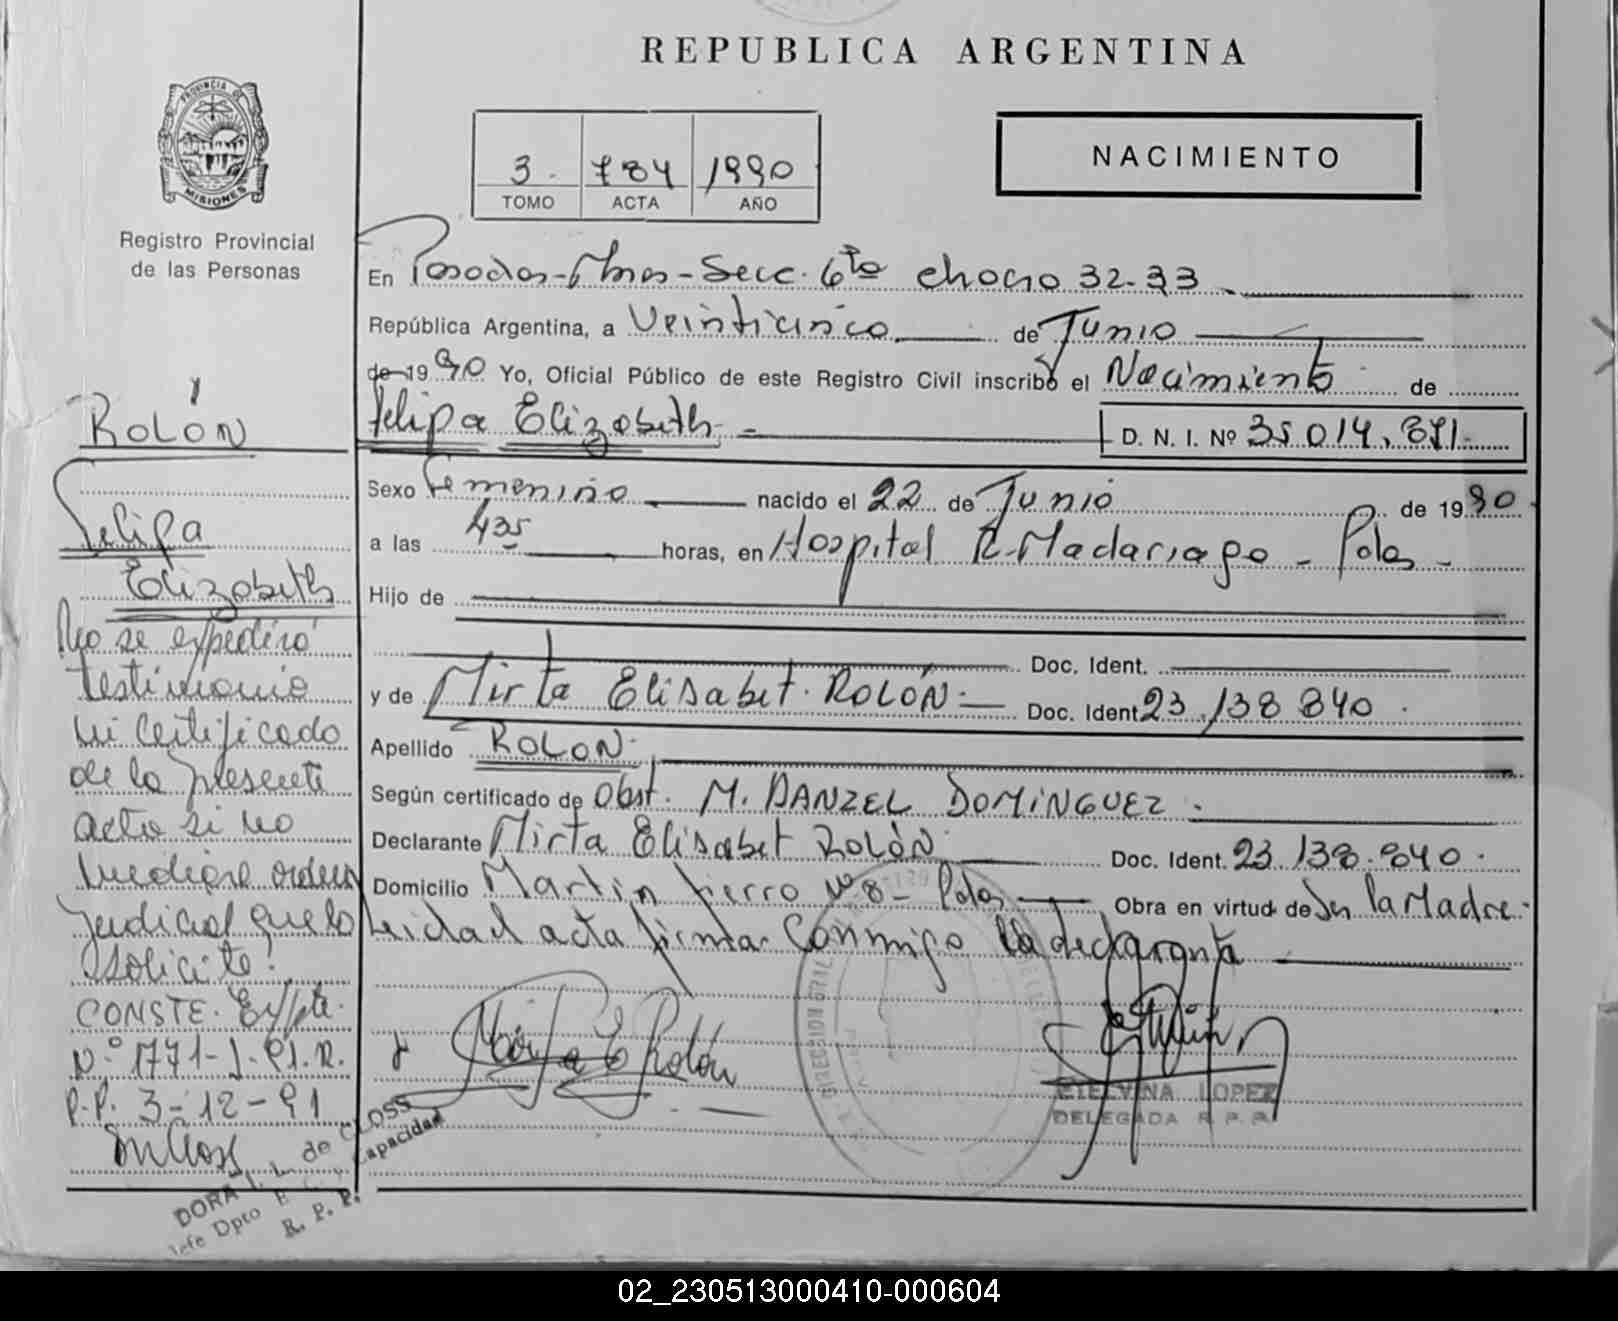 REPUBLICA ARGENTINA
PROVINCIA DE
MISIONES
Registro Provincial
de las Personas
3. 784 1990
TOMO ACTA AÑO
NACIMIENTO
En Posadas-Mnes-Secc. 6ta chacra 32-33
República Argentina, a Veinticinco de Junio
de 1990 Yo, Oficial Público de este Registro Civil inscribo el Nacimiento de
Felipa Elizabeth D. N. I. Nº 35.014.871
Sexo Femenino nacido el 22 de Junio de 1990
a las 435 horas, en Hospital R. Madariaga - Pdas -
Hijo de
Doc. Ident.
y de Mirta Elisabet ROLÓN Doc. Ident 23.138.840.
Apellido ROLON
Según certificado de Obst. M. DANZEL DOMINGUEZ.
Declarante Mirta Elisabet ROLÓN Doc. Ident. 23.138.840.
Domicilio Martin fierro Nº 8 - Pdas Obra en virtud de Ser la Madre.
leida el acta firma conmigo la declarante
Mirta E Rolón
ETELVINA LOPEZ
DELEGADA R. P. P.
ROLÓN
Felipa
Elizabeth
No se expedirá
testimonio
ni certificado
de la presente
acta si no
mediare orden
judicial que lo
solicite.
CONSTE. Expte.
N.º 1771-J-91.R.
P.P. 3-12-91
DORA I. L. de CLOSS
Jefe Dpto E. C. y Capacidad
R. P. P.
DIRECCION GRAL
02_230513000410-000604